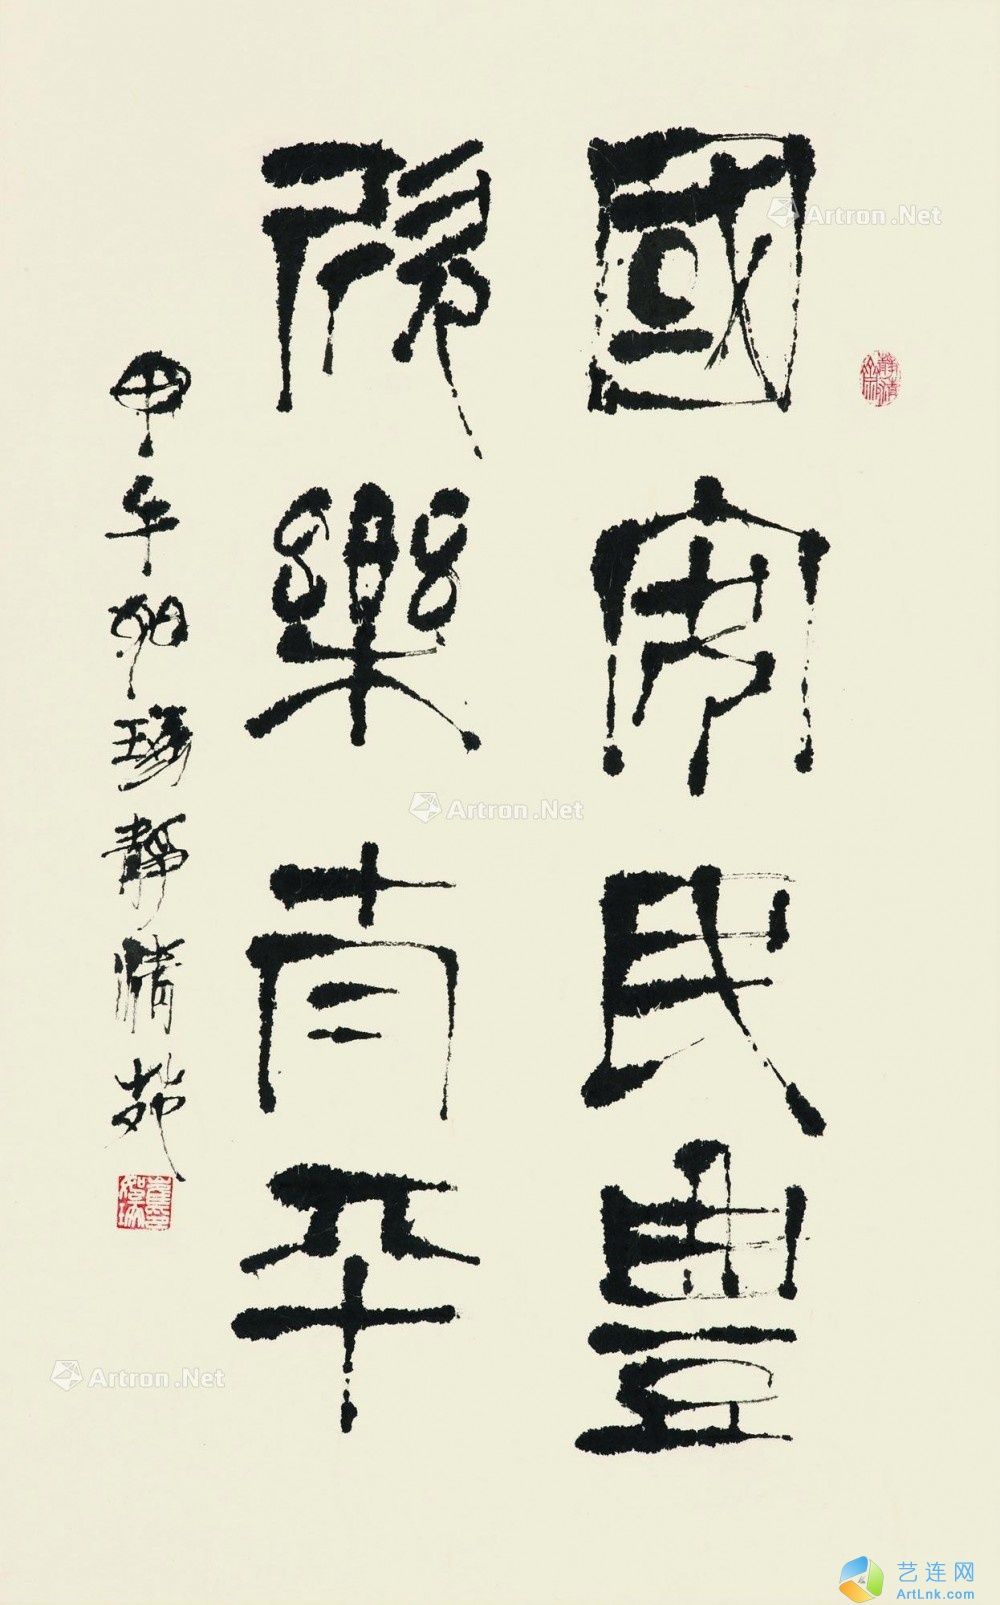 國安民豐
欣樂太平
甲午如静清苑
Artron.Net
Artron.Net
Artron.Net
艺连网
ArtLnk.com